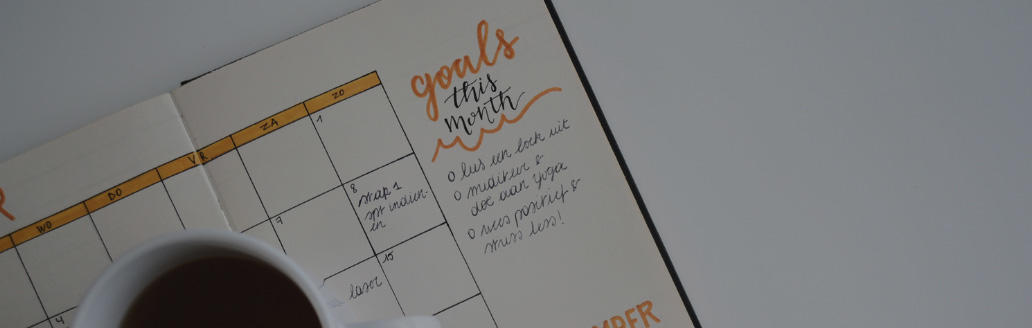 goals
this
month
WO
DO
VR
ZA
ZO
1
o lees een boek uit
o mediteer &
doe aan yoga
o wees positief &
stress less!
7
8
stap 1
in
4
15
laser
MBER